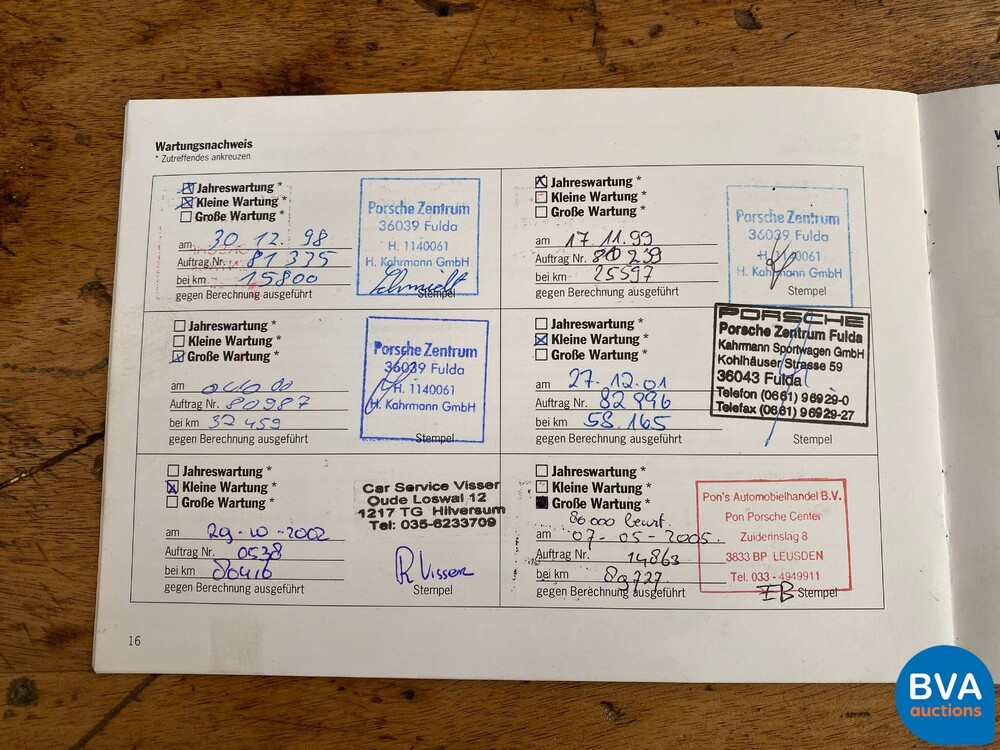 Wartungsnachweis
* Zutreffendes ankreuzen
Jahreswartung *
Kleine Wartung *
Große Wartung *
am 30.12.98
Auftrag Nr. 81375
bei km 15800
gegen Berechnung ausgeführt
Porsche Zentrum
36039 Fulda
H. 1140061
H. Kahrmann GmbH
Schmidt
Stempel
Jahreswartung *
Kleine Wartung *
Große Wartung *
am 17.11.99
Auftrag Nr. 80239
bei km 25597
gegen Berechnung ausgeführt
Porsche Zentrum
36039 Fulda
H. 1140061
H. Kahrmann GmbH
Stempel
Jahreswartung *
Kleine Wartung *
Große Wartung *
am
Auftrag Nr. 80987
bei km 32459
gegen Berechnung ausgeführt
Porsche Zentrum
36039 Fulda
H. 1140061
H. Kahrmann GmbH
Stempel
Jahreswartung *
Kleine Wartung *
Große Wartung *
am 27.12.01
Auftrag Nr. 82996
bei km 58.165
gegen Berechnung ausgeführt
PORSCHE
Porsche Zentrum Fulda
Kahrmann Sportwagen GmbH
Kohlhäuser Strasse 59
36043 Fulda
Telefon (0661) 96929-0
Telefax (0661) 96929-27
Stempel
Jahreswartung *
Kleine Wartung *
Große Wartung *
am 29-10-2002
Auftrag Nr. 0538
bei km 80416
gegen Berechnung ausgeführt
Car Service Visser
Oude Loswal 12
1217 TG Hilversum
Tel: 035-6233709
R Visser
Stempel
Jahreswartung *
Kleine Wartung *
Große Wartung *
80000 beurt.
am 07-05-2005.
Auftrag Nr. 14863
bei km 89727
gegen Berechnung ausgeführt
Pon's Automobielhandel B.V.
Pon Porsche Center
Zuiderinslag 8
3833 BP LEUSDEN
Tel. 033 - 4949911
Stempel
16
BVA
auctions